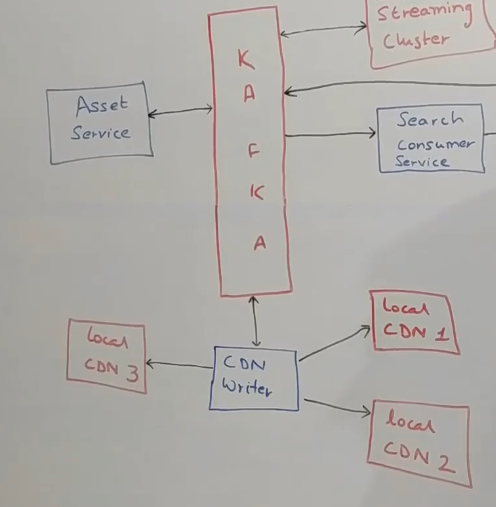 Streaming
Cluster
K
A
F
K
A
Asset
Service
Search
Consumer
Service
local
CDN 1
local
CDN 3
CDN
Writer
local
CDN 2